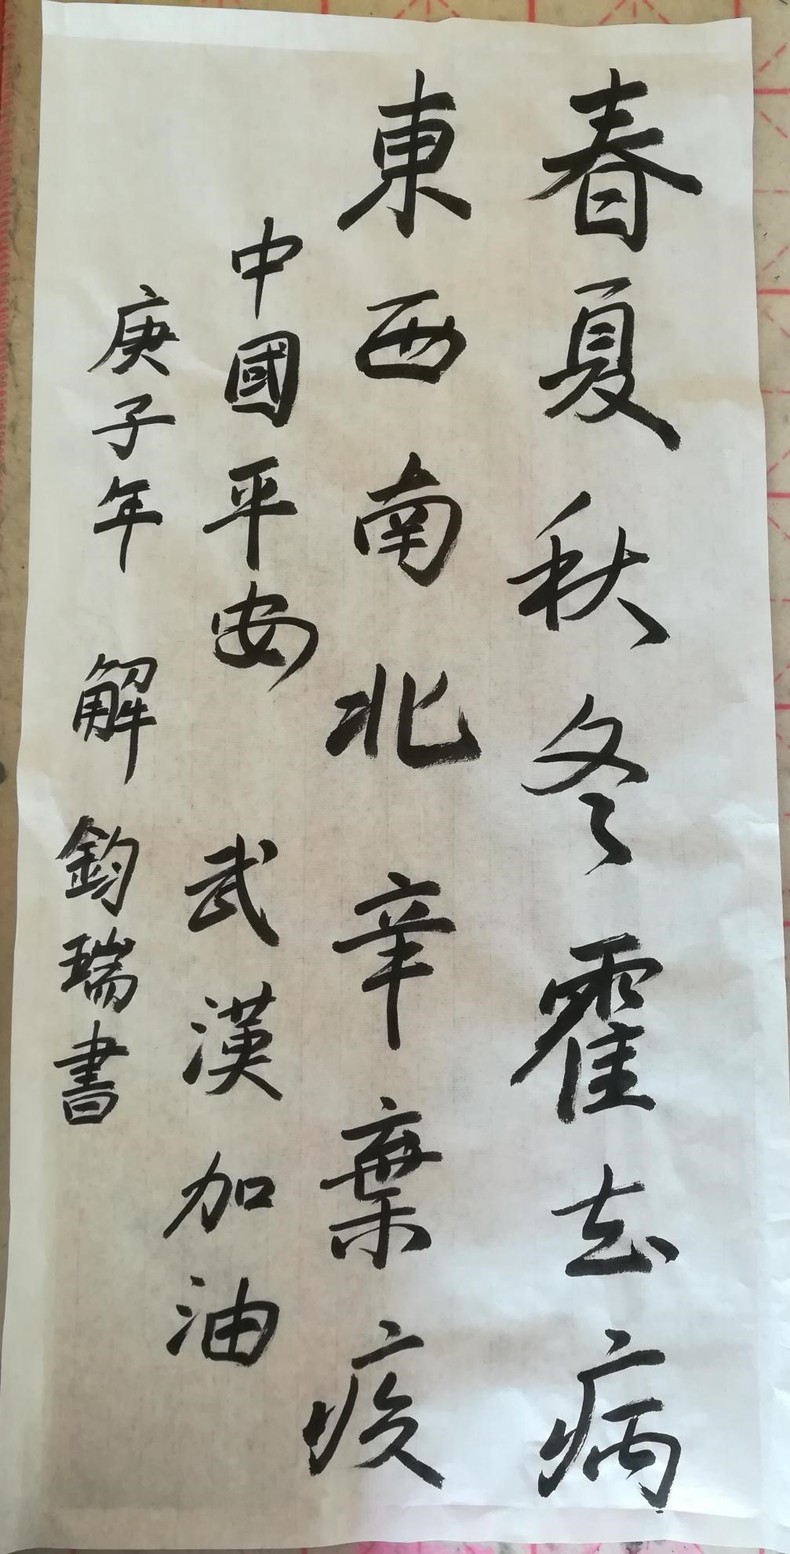 春夏秋冬霍去病
東西南北辛棄疾
中國平安 武漢加油
庚子年 解鈞瑞書